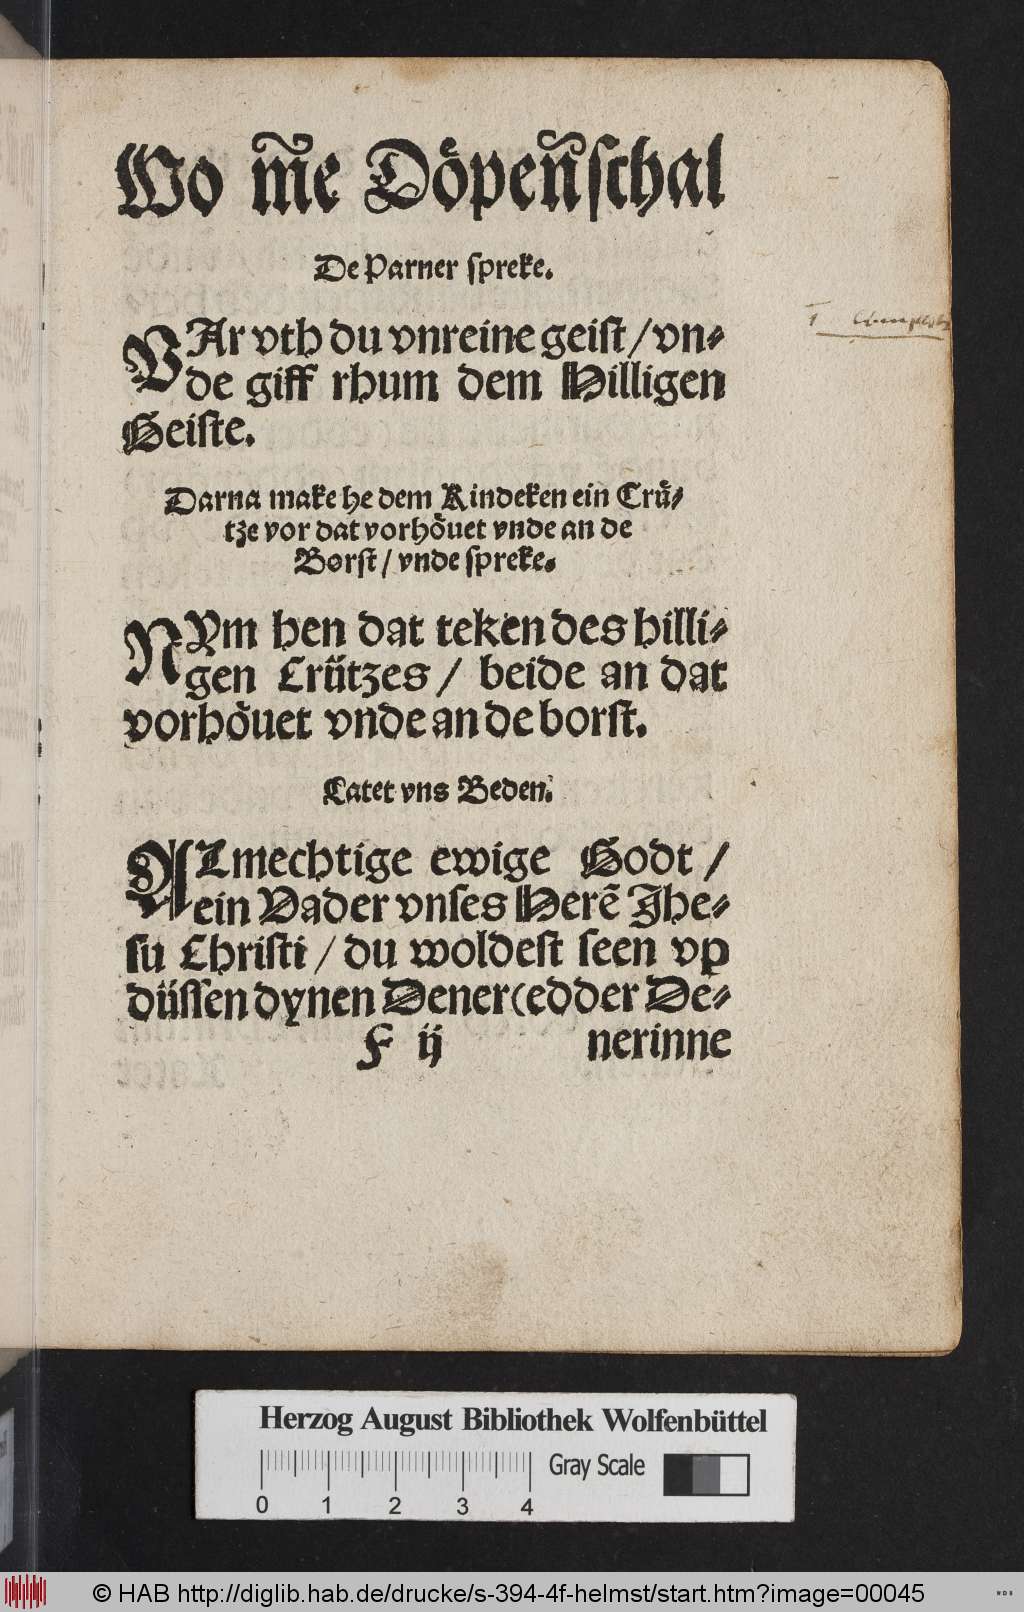 Wo mē Döpen̄schal
De Parner spreke.
VAr vth du vnreine geist / vn⸗
de giff rhum dem Hilligen
Geiste.
Darna make he dem Kindeken ein Crü⸗
tze vor dat vorhöuet vnde an de
Borst / vnde spreke.
NYm hen dat teken des hilli⸗
gen Crützes / beide an dat
vorhöuet vnde an de borst.
Latet vns Beden.
ALmechtige ewige Godt /
ein Vader vnses Herē Jhe⸗
su Christi / du woldest seen vp
düssen dynen Dener (edder De⸗
F ij nerinne
Herzog August Bibliothek Wolfenbüttel
Gray Scale
0 1 2 3 4
© HAB http://diglib.hab.de/drucke/s-394-4f-helmst/start.htm?image=00045